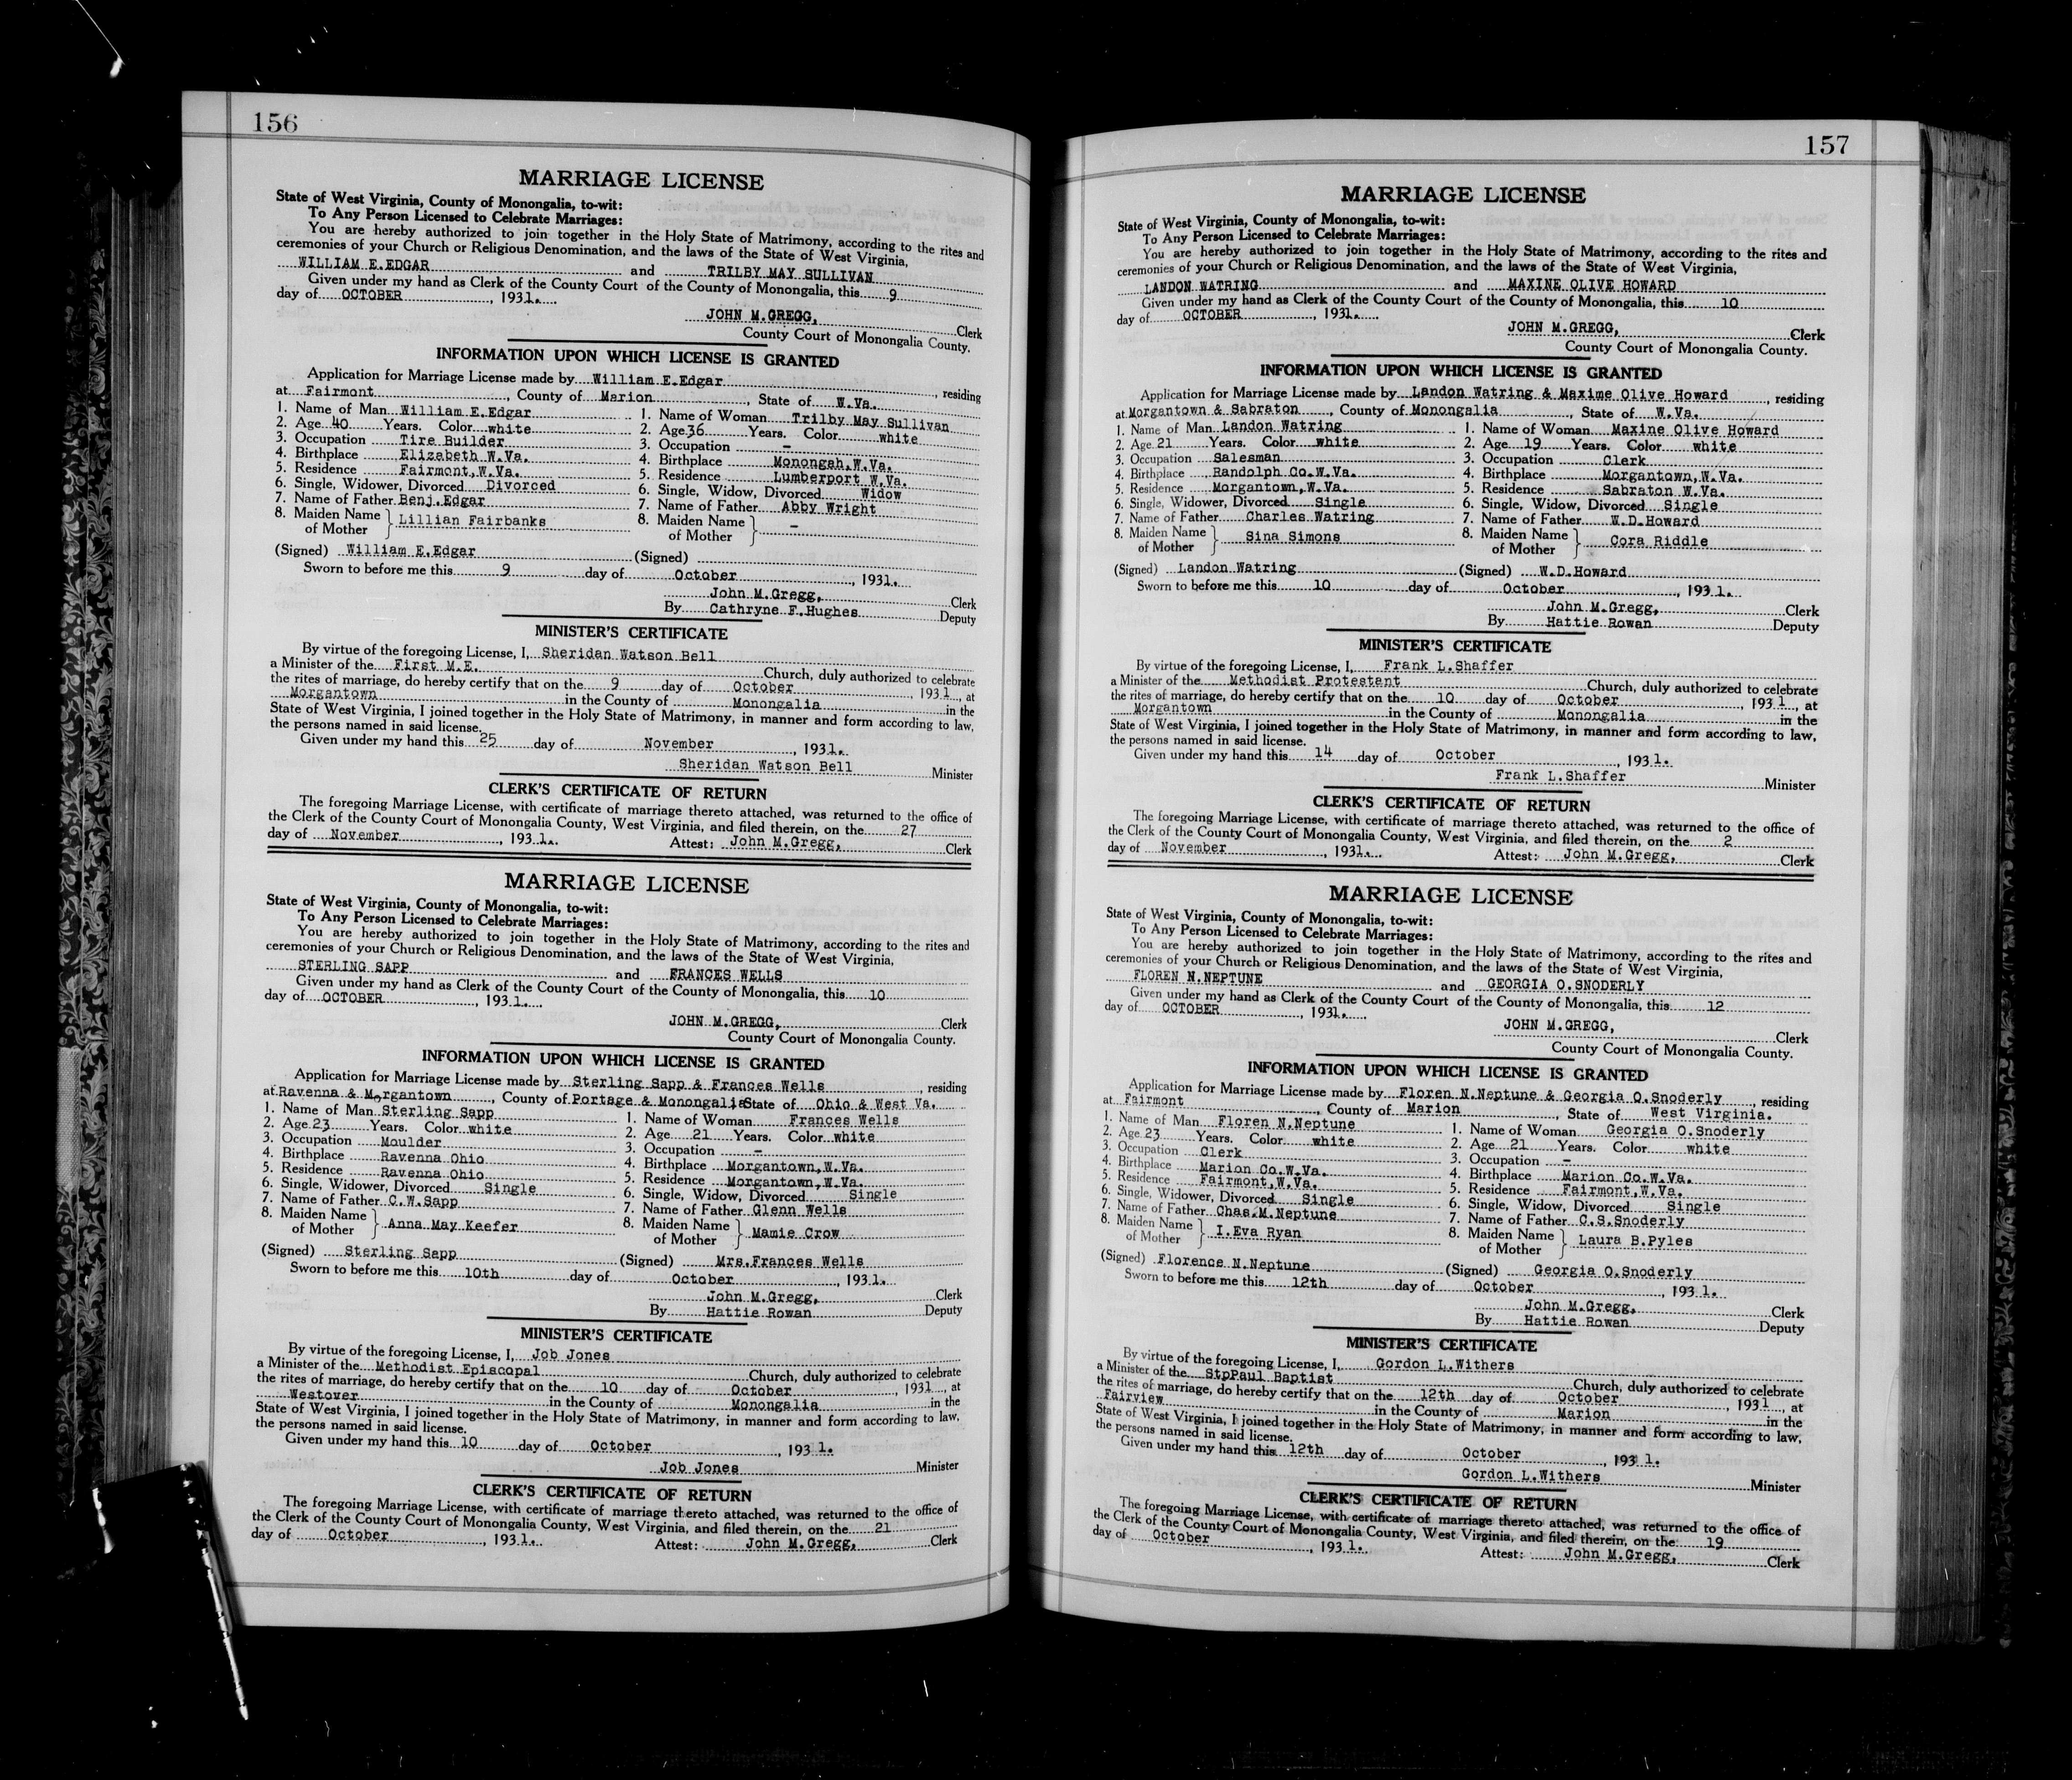 156
MARRIAGE LICENSE
State of West Virginia, County of Monongalia, to-wit:
To Any Person Licensed to Celebrate Marriages:
You are hereby authorized to join together in the Holy State of Matrimony, according to the rites and
ceremonies of your Church or Religious Denomination, and the laws of the State of West Virginia,
WILLIAM E.EDGAR and TRILBY MAY SULLIVAN
Given under my hand as Clerk of the County Court of the County of Monongalia, this 9
day of OCTOBER, 1931.
JOHN M.GREGG, Clerk
County Court of Monongalia County.
INFORMATION UPON WHICH LICENSE IS GRANTED
Application for Marriage License made by William E.Edgar, residing
at Fairmont, County of Marion, State of W.Va.
1. Name of Man William E.Edgar 1. Name of Woman Trilby May Sullivan
2. Age 40 Years. Color white 2. Age 36 Years. Color white
3. Occupation Tire Builder 3. Occupation -
4. Birthplace Elizabeth W.Va. 4. Birthplace Monongah,W.Va.
5. Residence Fairmont,W.Va. 5. Residence Lumberport W.Va.
6. Single, Widower, Divorced Divorced 6. Single, Widow, Divorced Widow
7. Name of Father Benj.Edgar 7. Name of Father Abby Wright
8. Maiden Name of Mother } Lillian Fairbanks 8. Maiden Name of Mother } -
(Signed) William E.Edgar (Signed)
Sworn to before me this 9 day of October, 1931.
John M.Gregg, Clerk
By Cathryne F.Hughes Deputy
MINISTER'S CERTIFICATE
By virtue of the foregoing License, I, Sheridan Watson Bell
a Minister of the First M.E. Church, duly authorized to celebrate
the rites of marriage, do hereby certify that on the 9 day of October, 1931, at
Morgantown in the County of Monongalia in the
State of West Virginia, I joined together in the Holy State of Matrimony, in manner and form according to law,
the persons named in said license.
Given under my hand this 25 day of November, 1931.
Sheridan Watson Bell Minister
CLERK'S CERTIFICATE OF RETURN
The foregoing Marriage License, with certificate of marriage thereto attached, was returned to the office of
the Clerk of the County Court of Monongalia County, West Virginia, and filed therein, on the 27
day of November, 1931. Attest: John M.Gregg, Clerk
MARRIAGE LICENSE
State of West Virginia, County of Monongalia, to-wit:
To Any Person Licensed to Celebrate Marriages:
You are hereby authorized to join together in the Holy State of Matrimony, according to the rites and
ceremonies of your Church or Religious Denomination, and the laws of the State of West Virginia,
STERLING SAPP and FRANCES WELLS
Given under my hand as Clerk of the County Court of the County of Monongalia, this 10
day of OCTOBER, 1931.
JOHN M.GREGG, Clerk
County Court of Monongalia County.
INFORMATION UPON WHICH LICENSE IS GRANTED
Application for Marriage License made by Sterling Sapp & Frances Wells, residing
at Ravenna & Morgantown, County of Portage & Monongalia State of Ohio & West Va.
1. Name of Man Sterling Sapp 1. Name of Woman Frances Wells
2. Age 23 Years. Color white 2. Age 21 Years. Color white
3. Occupation Moulder 3. Occupation -
4. Birthplace Ravenna Ohio 4. Birthplace Morgantown,W.Va.
5. Residence Ravenna Ohio 5. Residence Morgantown,W.Va.
6. Single, Widower, Divorced Single 6. Single, Widow, Divorced Single
7. Name of Father C.W.Sapp 7. Name of Father Glenn Wells
8. Maiden Name of Mother } Anna May Keefer 8. Maiden Name of Mother } Mamie Crow
(Signed) Sterling Sapp (Signed) Mrs.Frances Wells
Sworn to before me this 10th day of October, 1931.
John M.Gregg, Clerk
By Hattie Rowan Deputy
MINISTER'S CERTIFICATE
By virtue of the foregoing License, I, Job Jones
a Minister of the Methodist Episcopal Church, duly authorized to celebrate
the rites of marriage, do hereby certify that on the 10 day of October, 1931, at
Westover in the County of Monongalia in the
State of West Virginia, I joined together in the Holy State of Matrimony, in manner and form according to law,
the persons named in said license.
Given under my hand this 10 day of October, 1931.
Job Jones Minister
CLERK'S CERTIFICATE OF RETURN
The foregoing Marriage License, with certificate of marriage thereto attached, was returned to the office of
the Clerk of the County Court of Monongalia County, West Virginia, and filed therein, on the 21
day of October, 1931. Attest: John M.Gregg, Clerk
157
MARRIAGE LICENSE
State of West Virginia, County of Monongalia, to-wit:
To Any Person Licensed to Celebrate Marriages:
You are hereby authorized to join together in the Holy State of Matrimony, according to the rites and
ceremonies of your Church or Religious Denomination, and the laws of the State of West Virginia,
LANDON WATRING and MAXINE OLIVE HOWARD
Given under my hand as Clerk of the County Court of the County of Monongalia, this 10
day of OCTOBER, 1931.
JOHN M.GREGG, Clerk
County Court of Monongalia County.
INFORMATION UPON WHICH LICENSE IS GRANTED
Application for Marriage License made by Landon Watring & Maxime Olive Howard, residing
at Morgantown & Sabraton, County of Monongalia, State of W.Va.
1. Name of Man Landon Watring 1. Name of Woman Maxine Olive Howard
2. Age 21 Years. Color white 2. Age 19 Years. Color white
3. Occupation Salesman 3. Occupation Clerk
4. Birthplace Randolph Co.W.Va. 4. Birthplace Morgantown,W.Va.
5. Residence Morgantown,W.Va. 5. Residence Sabraton W.Va.
6. Single, Widower, Divorced Single 6. Single, Widow, Divorced Single
7. Name of Father Charles Watring 7. Name of Father W.D.Howard
8. Maiden Name of Mother } Sina Simons 8. Maiden Name of Mother } Cora Riddle
(Signed) Landon Watring (Signed) W.D.Howard
Sworn to before me this 10 day of October, 1931.
John M.Gregg, Clerk
By Hattie Rowan Deputy
MINISTER'S CERTIFICATE
By virtue of the foregoing License, I, Frank L.Shaffer
a Minister of the Methodist Protestant Church, duly authorized to celebrate
the rites of marriage, do hereby certify that on the 10 day of October, 1931, at
Morgantown in the County of Monongalia in the
State of West Virginia, I joined together in the Holy State of Matrimony, in manner and form according to law,
the persons named in said license.
Given under my hand this 14 day of October, 1931.
Frank L.Shaffer Minister
CLERK'S CERTIFICATE OF RETURN
The foregoing Marriage License, with certificate of marriage thereto attached, was returned to the office of
the Clerk of the County Court of Monongalia County, West Virginia, and filed therein, on the 2
day of November, 1931. Attest: John M.Gregg, Clerk
MARRIAGE LICENSE
State of West Virginia, County of Monongalia, to-wit:
To Any Person Licensed to Celebrate Marriages:
You are hereby authorized to join together in the Holy State of Matrimony, according to the rites and
ceremonies of your Church or Religious Denomination, and the laws of the State of West Virginia,
FLOREN N.NEPTUNE and GEORGIA O.SNODERLY
Given under my hand as Clerk of the County Court of the County of Monongalia, this 12
day of OCTOBER, 1931.
JOHN M.GREGG, Clerk
County Court of Monongalia County.
INFORMATION UPON WHICH LICENSE IS GRANTED
Application for Marriage License made by Floren N.Neptune & Georgia O.Snoderly, residing
at Fairmont, County of Marion, State of West Virginia.
1. Name of Man Floren N.Neptune 1. Name of Woman Georgia O.Snoderly
2. Age 23 Years. Color white 2. Age 21 Years. Color white
3. Occupation Clerk 3. Occupation -
4. Birthplace Marion Co.W.Va. 4. Birthplace Marion Co.W.Va.
5. Residence Fairmont,W.Va. 5. Residence Fairmont,W.Va.
6. Single, Widower, Divorced Single 6. Single, Widow, Divorced Single
7. Name of Father Chas.M.Neptune 7. Name of Father C.S.Snoderly
8. Maiden Name of Mother } I.Eva Ryan 8. Maiden Name of Mother } Laura B.Pyles
(Signed) Florence N.Neptune (Signed) Georgia O.Snoderly
Sworn to before me this 12th day of October, 1931.
John M.Gregg, Clerk
By Hattie Rowan Deputy
MINISTER'S CERTIFICATE
By virtue of the foregoing License, I, Gordon L.Withers
a Minister of the StpPaul Baptist Church, duly authorized to celebrate
the rites of marriage, do hereby certify that on the 12th day of October, 1931, at
Fairview in the County of Marion in the
State of West Virginia, I joined together in the Holy State of Matrimony, in manner and form according to law,
the persons named in said license.
Given under my hand this 12th day of October, 1931.
Gordon L.Withers Minister
CLERK'S CERTIFICATE OF RETURN
The foregoing Marriage License, with certificate of marriage thereto attached, was returned to the office of
the Clerk of the County Court of Monongalia County, West Virginia, and filed therein, on the 19
day of October, 1931. Attest: John M.Gregg, Clerk